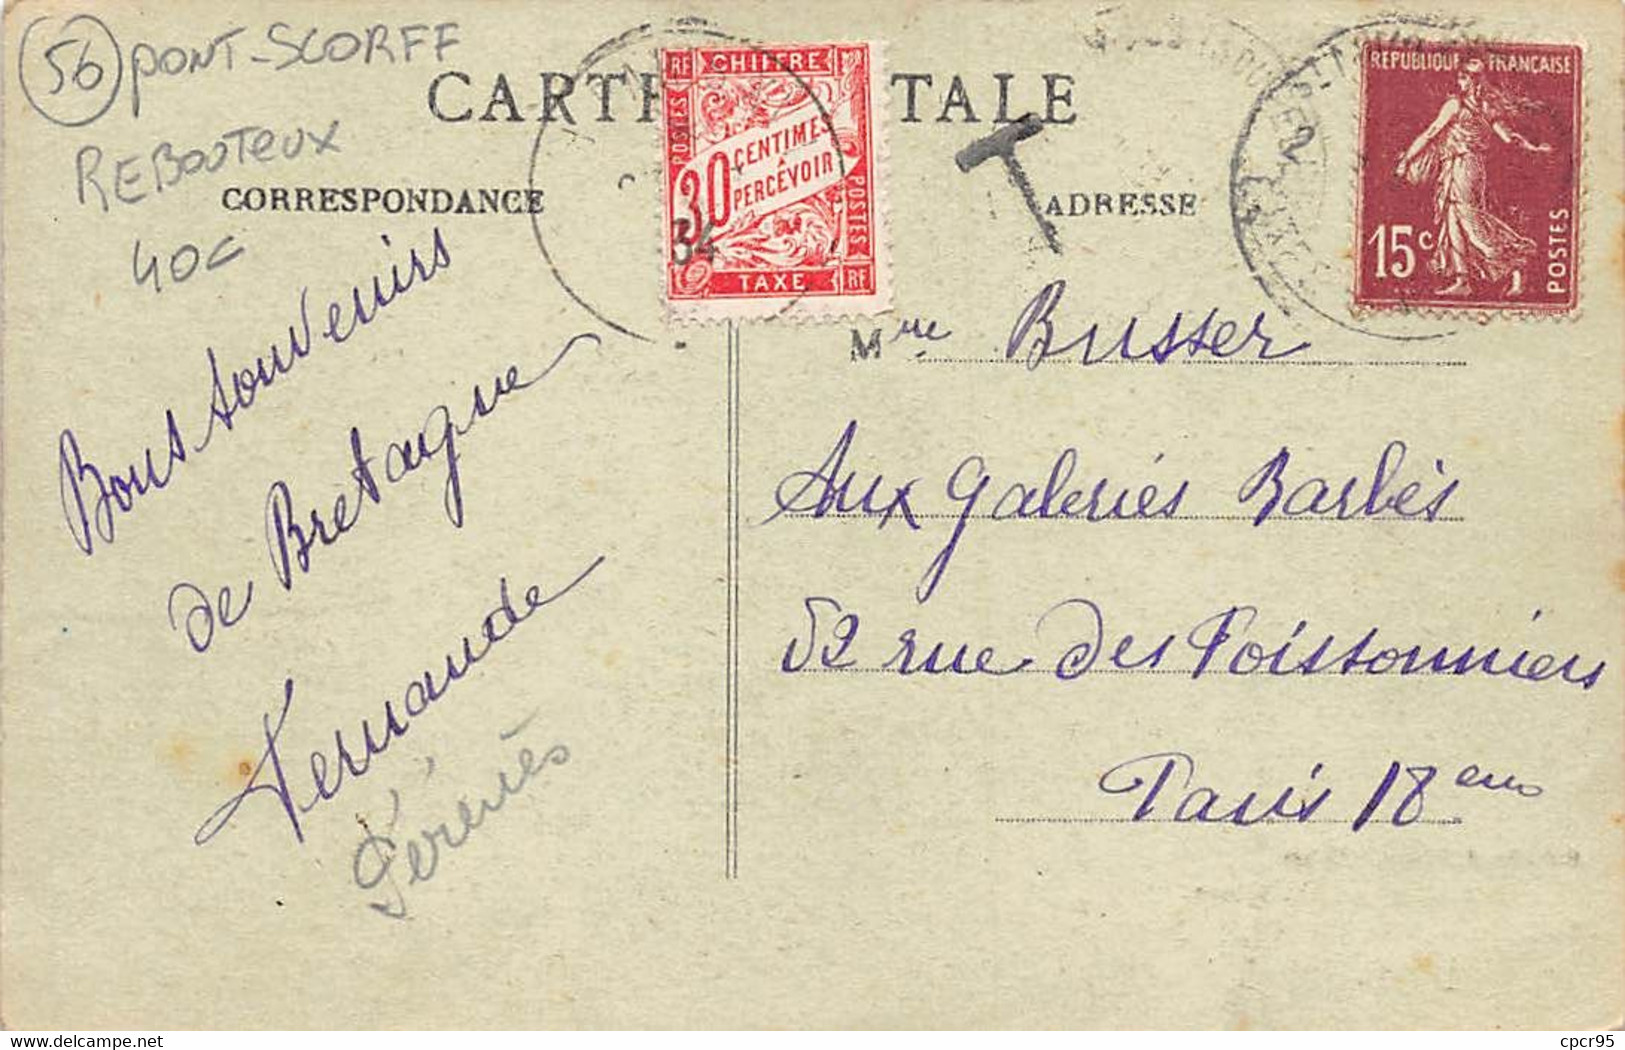 56 PONT-SCORFF
REBOUTEUX
40c
CARTE POSTALE
CORRESPONDANCE
ADRESSE
RF CHIFFRE
POSTES
30 CENTIMES
A
PERCEVOIR
POSTES
34
TAXE RF
T
REPUBLIQUE FRANÇAISE
15c
POSTES
Bons souvenirs
de Bretagne
Fernande
Férenès
Mme Busser
Aux Galeries Barbès
52 rue des Poissonniers
Paris 18eme
Delcampe.net
cpcr95